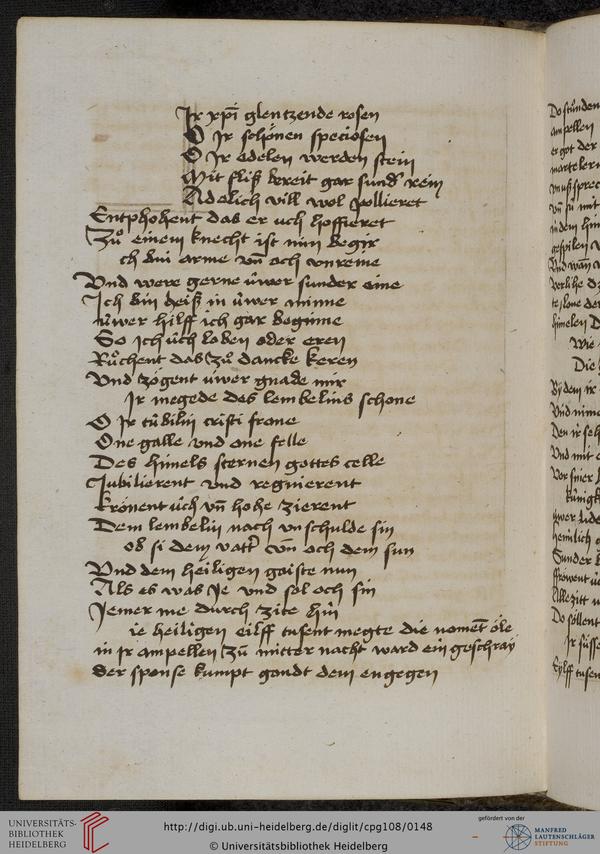 Ir xpi glentzende rosen
O Ir schönen speciosen
O Ir edelen werden stein
Mit fliß bereit gar sund' rein
Adelich vill wol pollieret
Entphohent das er uch hoffieret
Zů einem knecht ist min begir
ch bin arme vn̄ och vnreine
Vnd were gerne ůwer sunder eine
Ich bin heiß in ůwer minne
ůwer hilff ich gar beginne
So ich ůch loben oder eren
Růchent das zů dancke keren
Vnd zögent uwer gnade mir
Ir megede des lembelins schone
O Ir tübilin cristi frone
One galle vnd one felle
Des himels sternen gottes celle
Jubilierent vnd regnierent
krönent ůch vn̄ hohe zierent
Dem lembelin nach vnschulde sin
ob si dem vatt' vn̄ och dem sun
Vnd dem heiligen gaiste nun
Als es was Je vnd sol och sin
Jemer me durch zite hin
ie heiligen eilff tusent megte die nomēt öle
in Ir ampellen zů mitter nacht ward ein geschray
der sponse kumpt gondt dem engegen
Do stůnden
ampellen
er got der
martelern
muß sprec
vn̄ zů mit
in dem him
gespilen v
Vnd wan̄ v
verlihe dz
te lone der
himelen D
Wie
Die
By dem ir
Vnd nime
Den ir seh
Vnd mit
Vor siner
künigk
heimlich
Sunder
ffröwent
Alle zitt
Do söllent
Ir süsse
Eylff tusen
UNIVERSITÄTS-
BIBLIOTHEK
HEIDELBERG
http://digi.ub.uni-heidelberg.de/diglit/cpg108/0148
© Universitätsbibliothek Heidelberg
gefördert von der
MANFRED
LAUTENSCHLÄGER
STIFTUNG